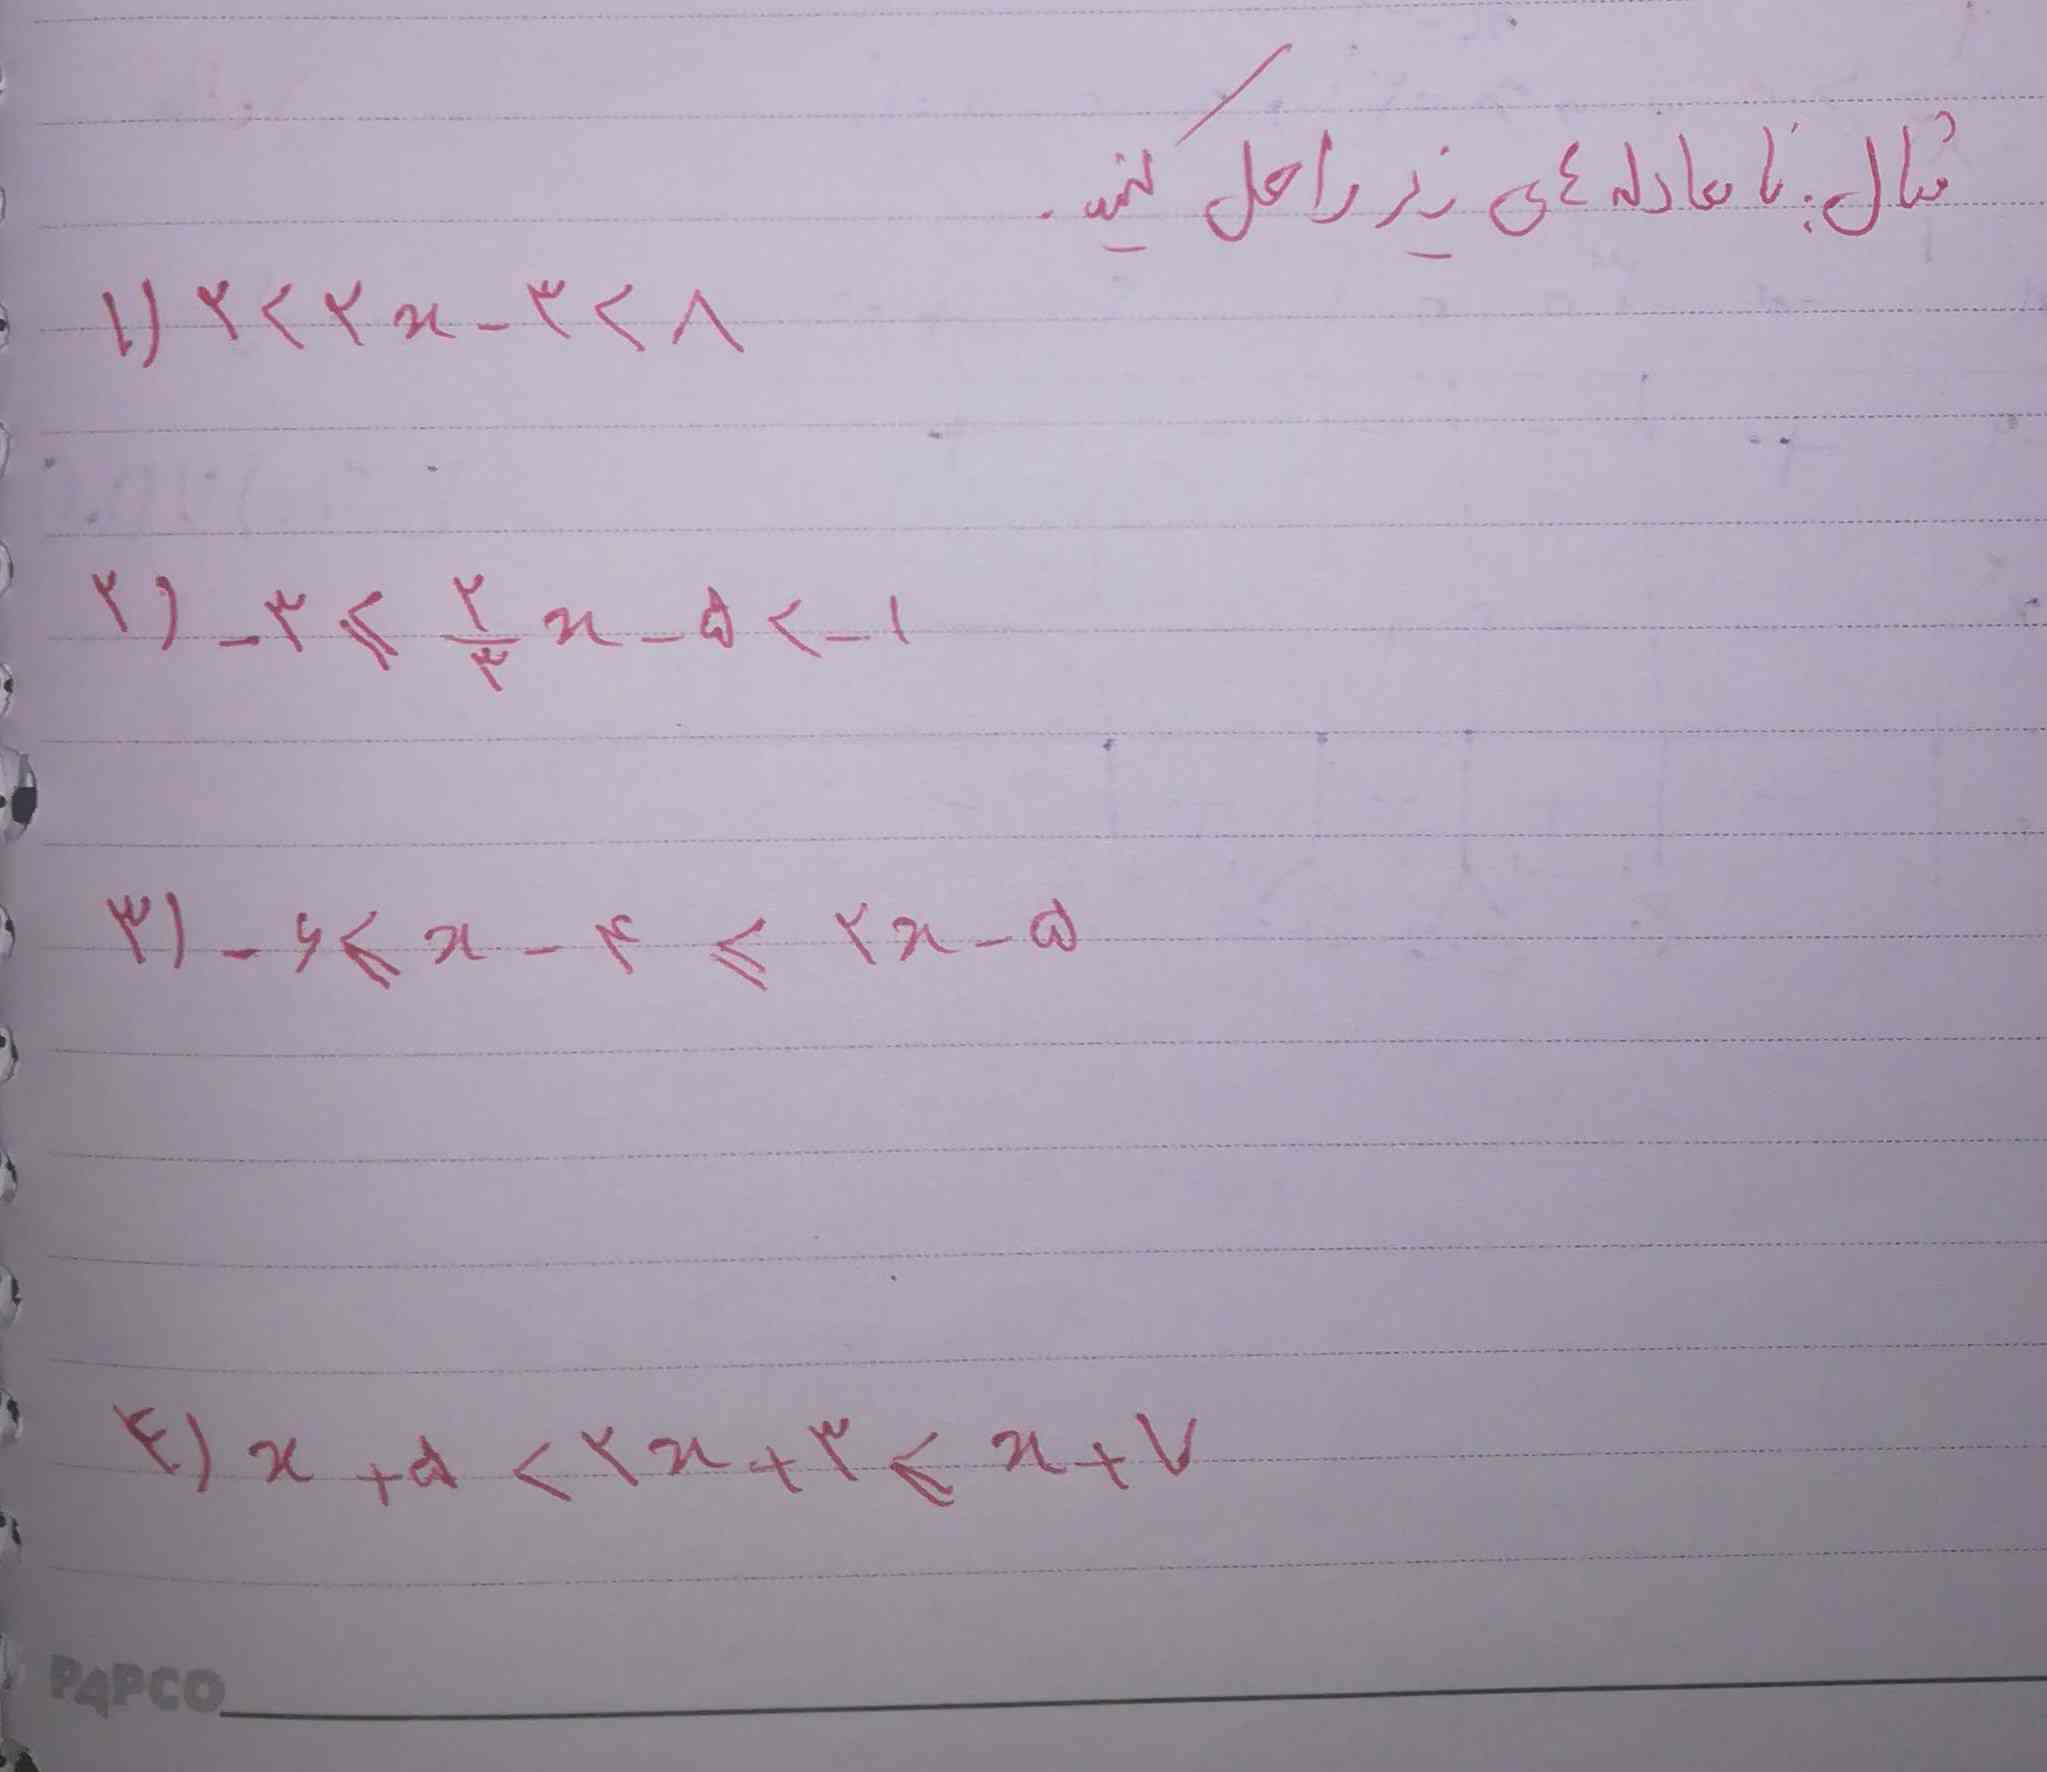 مثال: نامعادله های زیر را حل کنید.
۱) ۲ < ۲x - ۳ < ۸
۲) -۳ ⩽ ۲/۳ x - ۵ < -۱
۳) -۶ ⩽ x - ۴ ⩽ ۲x - ۵
۴) x + ۵ < ۲x + ۳ ⩽ x + ۷
PAPCO